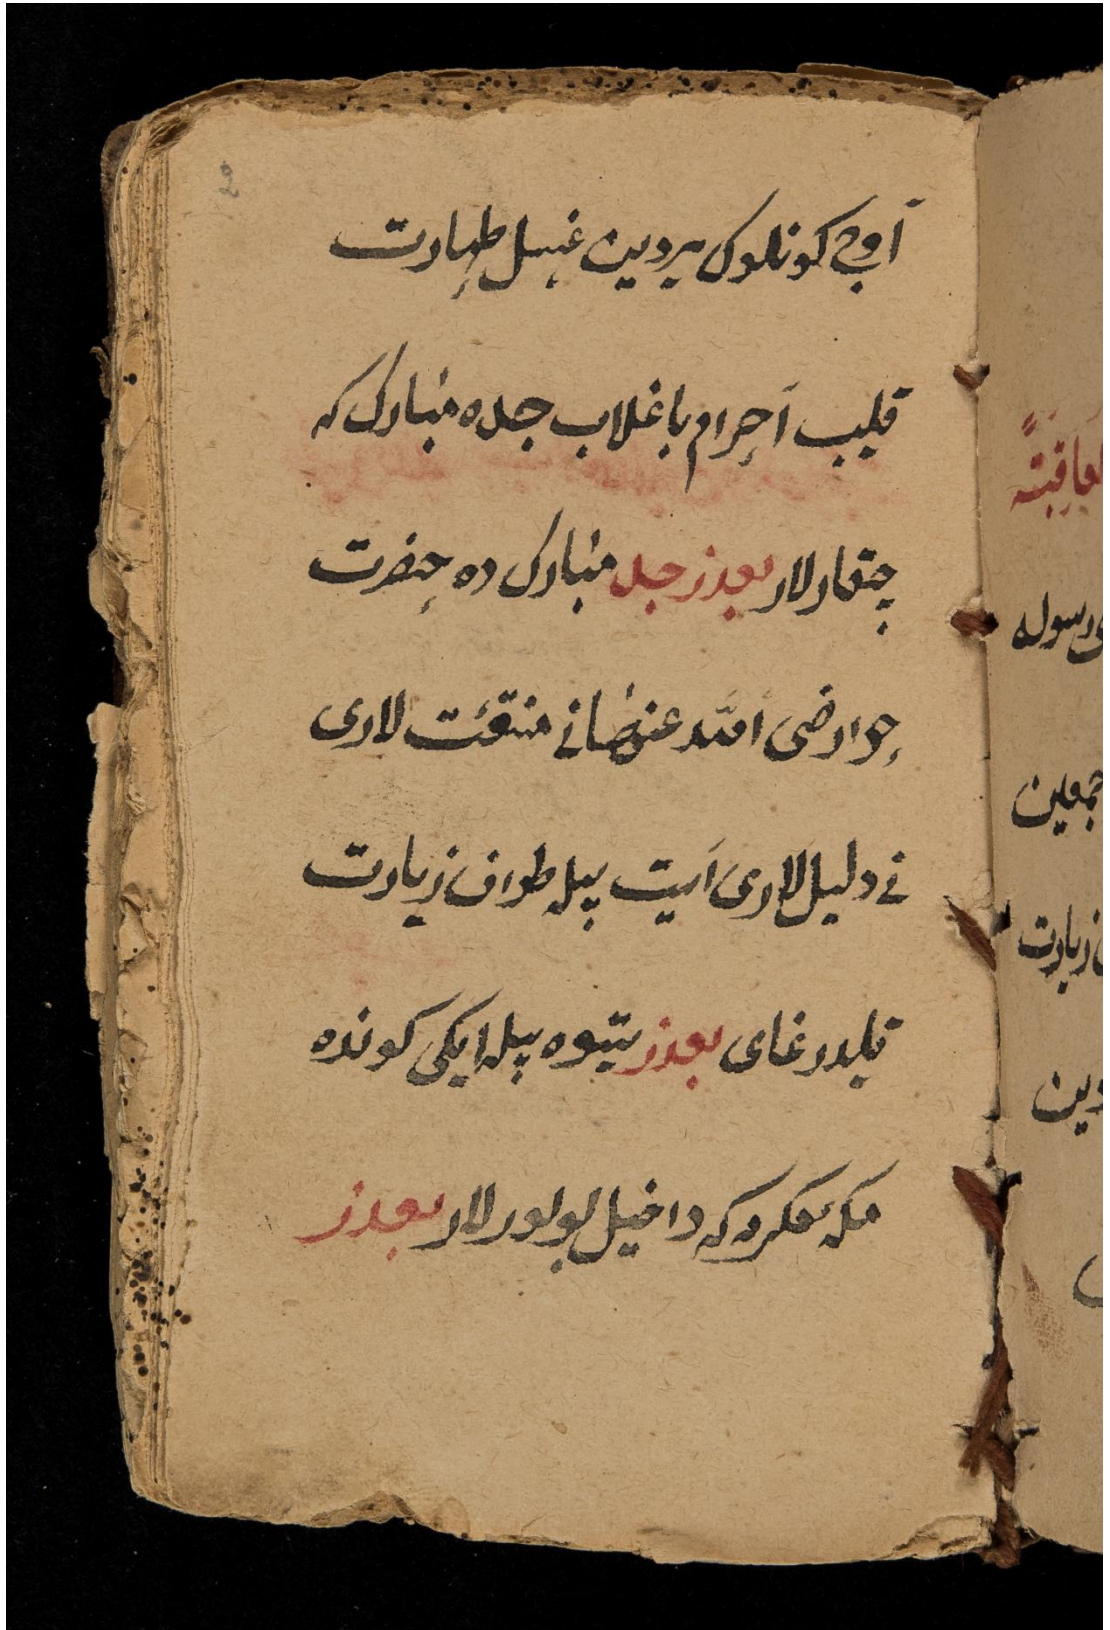 اَوچ کونلوک یردین غسل طهارت
قلیب اَحرام باغلاب جده مبارک که
چقارلار بعدز جده مبارک ده حضرت
حوا رضی الله عنها نی منقئت لاری
نی دلیل لاری اَیت بیله طواف زیارت
قلدورغای بعدز بیله ایکی کونده
مکه مکرمه که داخیل بولورلار بعدز
عاقبتة
رسوله
جمعین
زیارت
دین